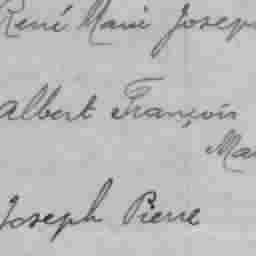 René Marie Joseph
Albert François
Mar
Joseph Pierre